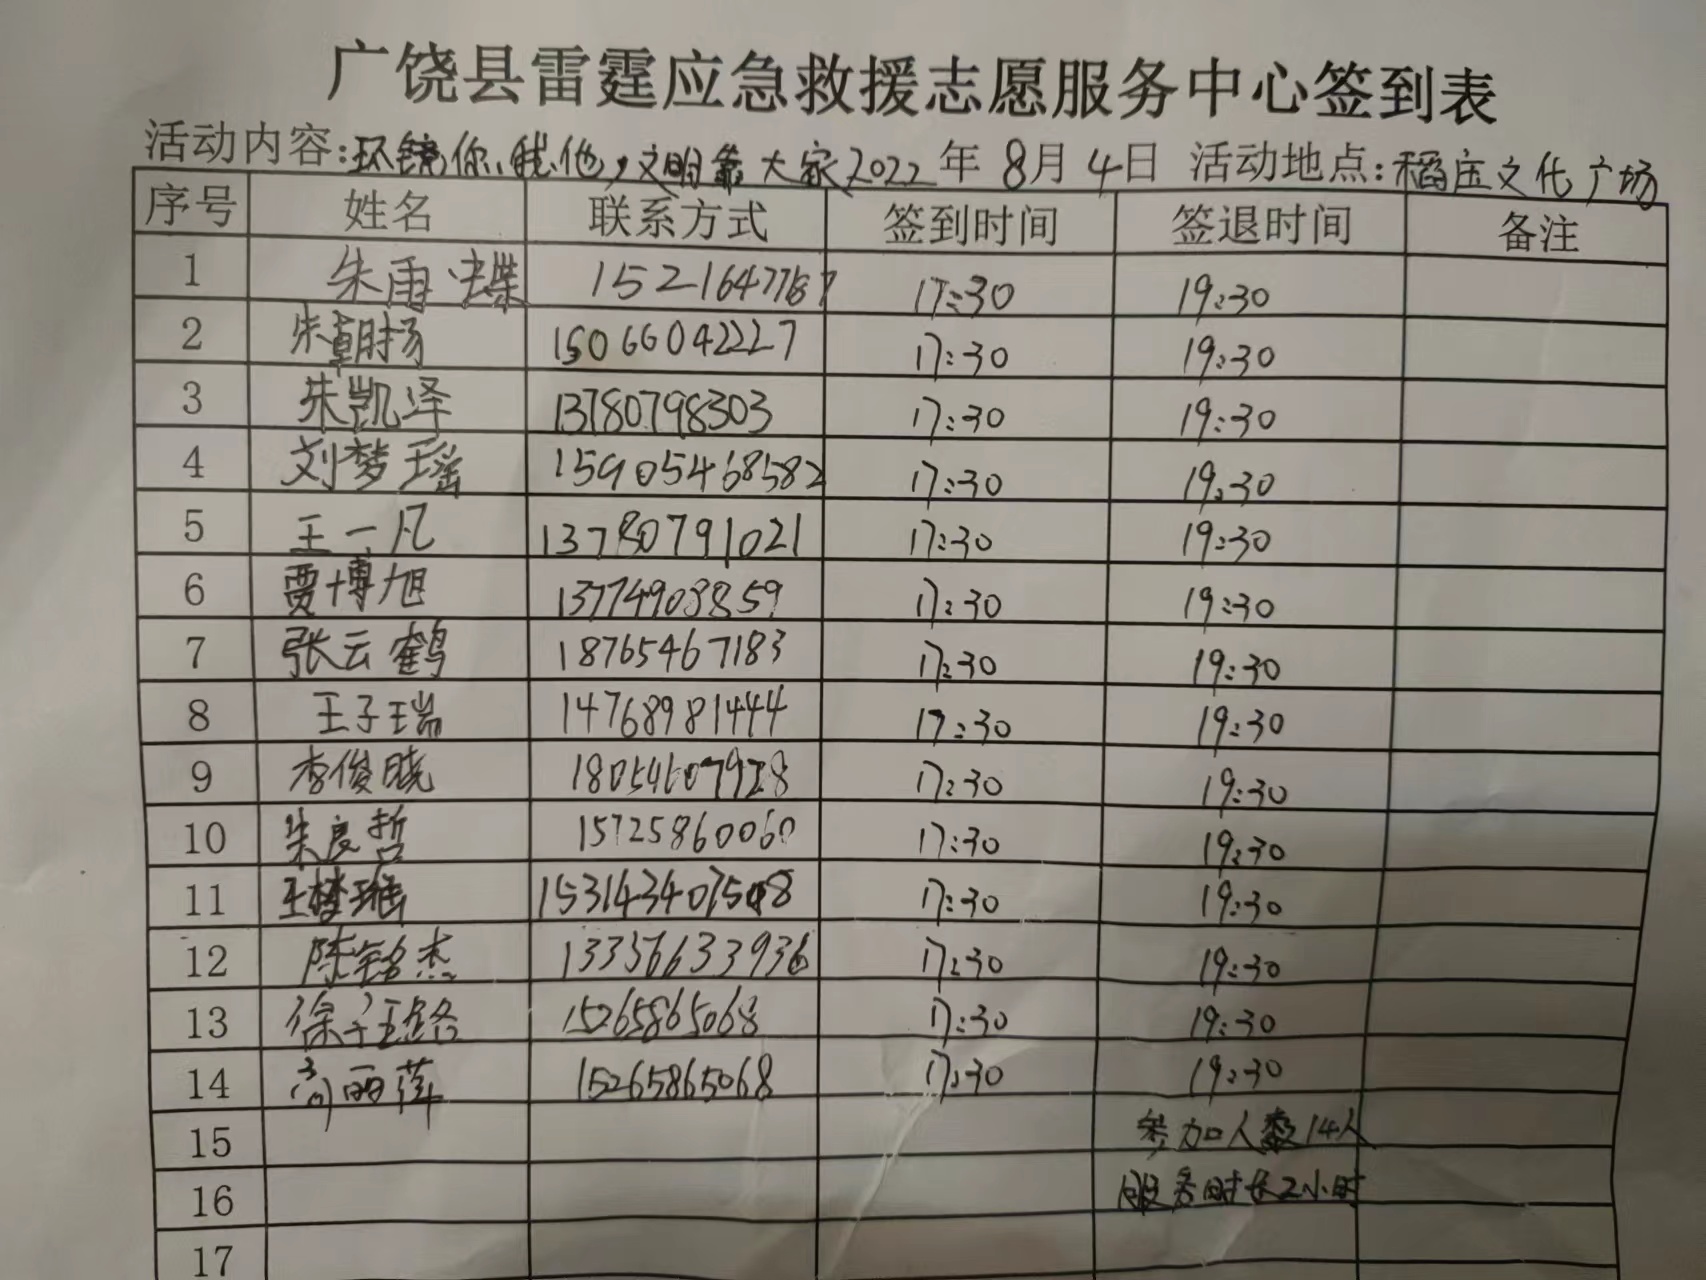 广饶县雷霆应急救援志愿服务中心签到表
活动内容:环镜你、我、他,文明靠大家2022年8月4日 活动地点:稻庄文化广场
序号 姓名 联系方式 签到时间 签退时间 备注
1 朱雨蝶 15216477187 17:30 19:30
2 朱朝扬 15066042227 17:30 19:30
3 朱凯泽 13780798303 17:30 19:30
4 刘梦瑶 15905468582 17:30 19:30
5 王一凡 13780791021 17:30 19:30
6 贾博旭 13774908859 17:30 19:30
7 张云鹤 18765467183 17:30 19:30
8 王子瑞 14768981444 17:30 19:30
9 李俊晓 18054607928 17:30 19:30
10 朱良哲 15725860060 17:30 19:30
11 17:30 19:30
12 陈铭杰 13356633936 17:30 19:30
13 15265865068 17:30 19:30
14 高丽萍 15265865068 17:30 19:30
15 参加人数14人
16 服务时长2小时
17